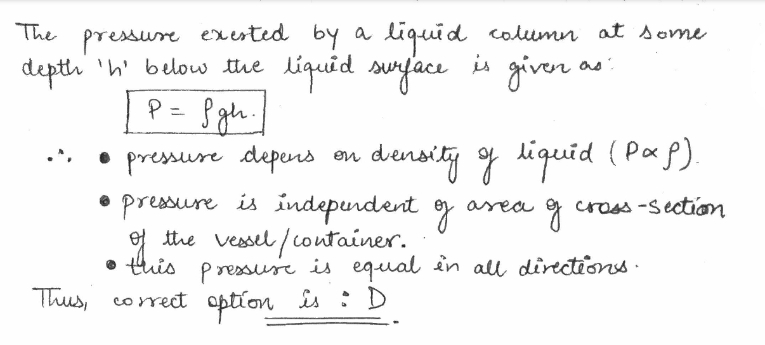 The pressure exerted by a liquid column at some
depth 'h' below the liquid surface is given as:
P = ρgh.
∴ • pressure depens on density of liquid (P∝ρ).
• pressure is independent of area of cross-section
of the vessel/container.
• this pressure is equal in all directions.
Thus, correct option is : D.